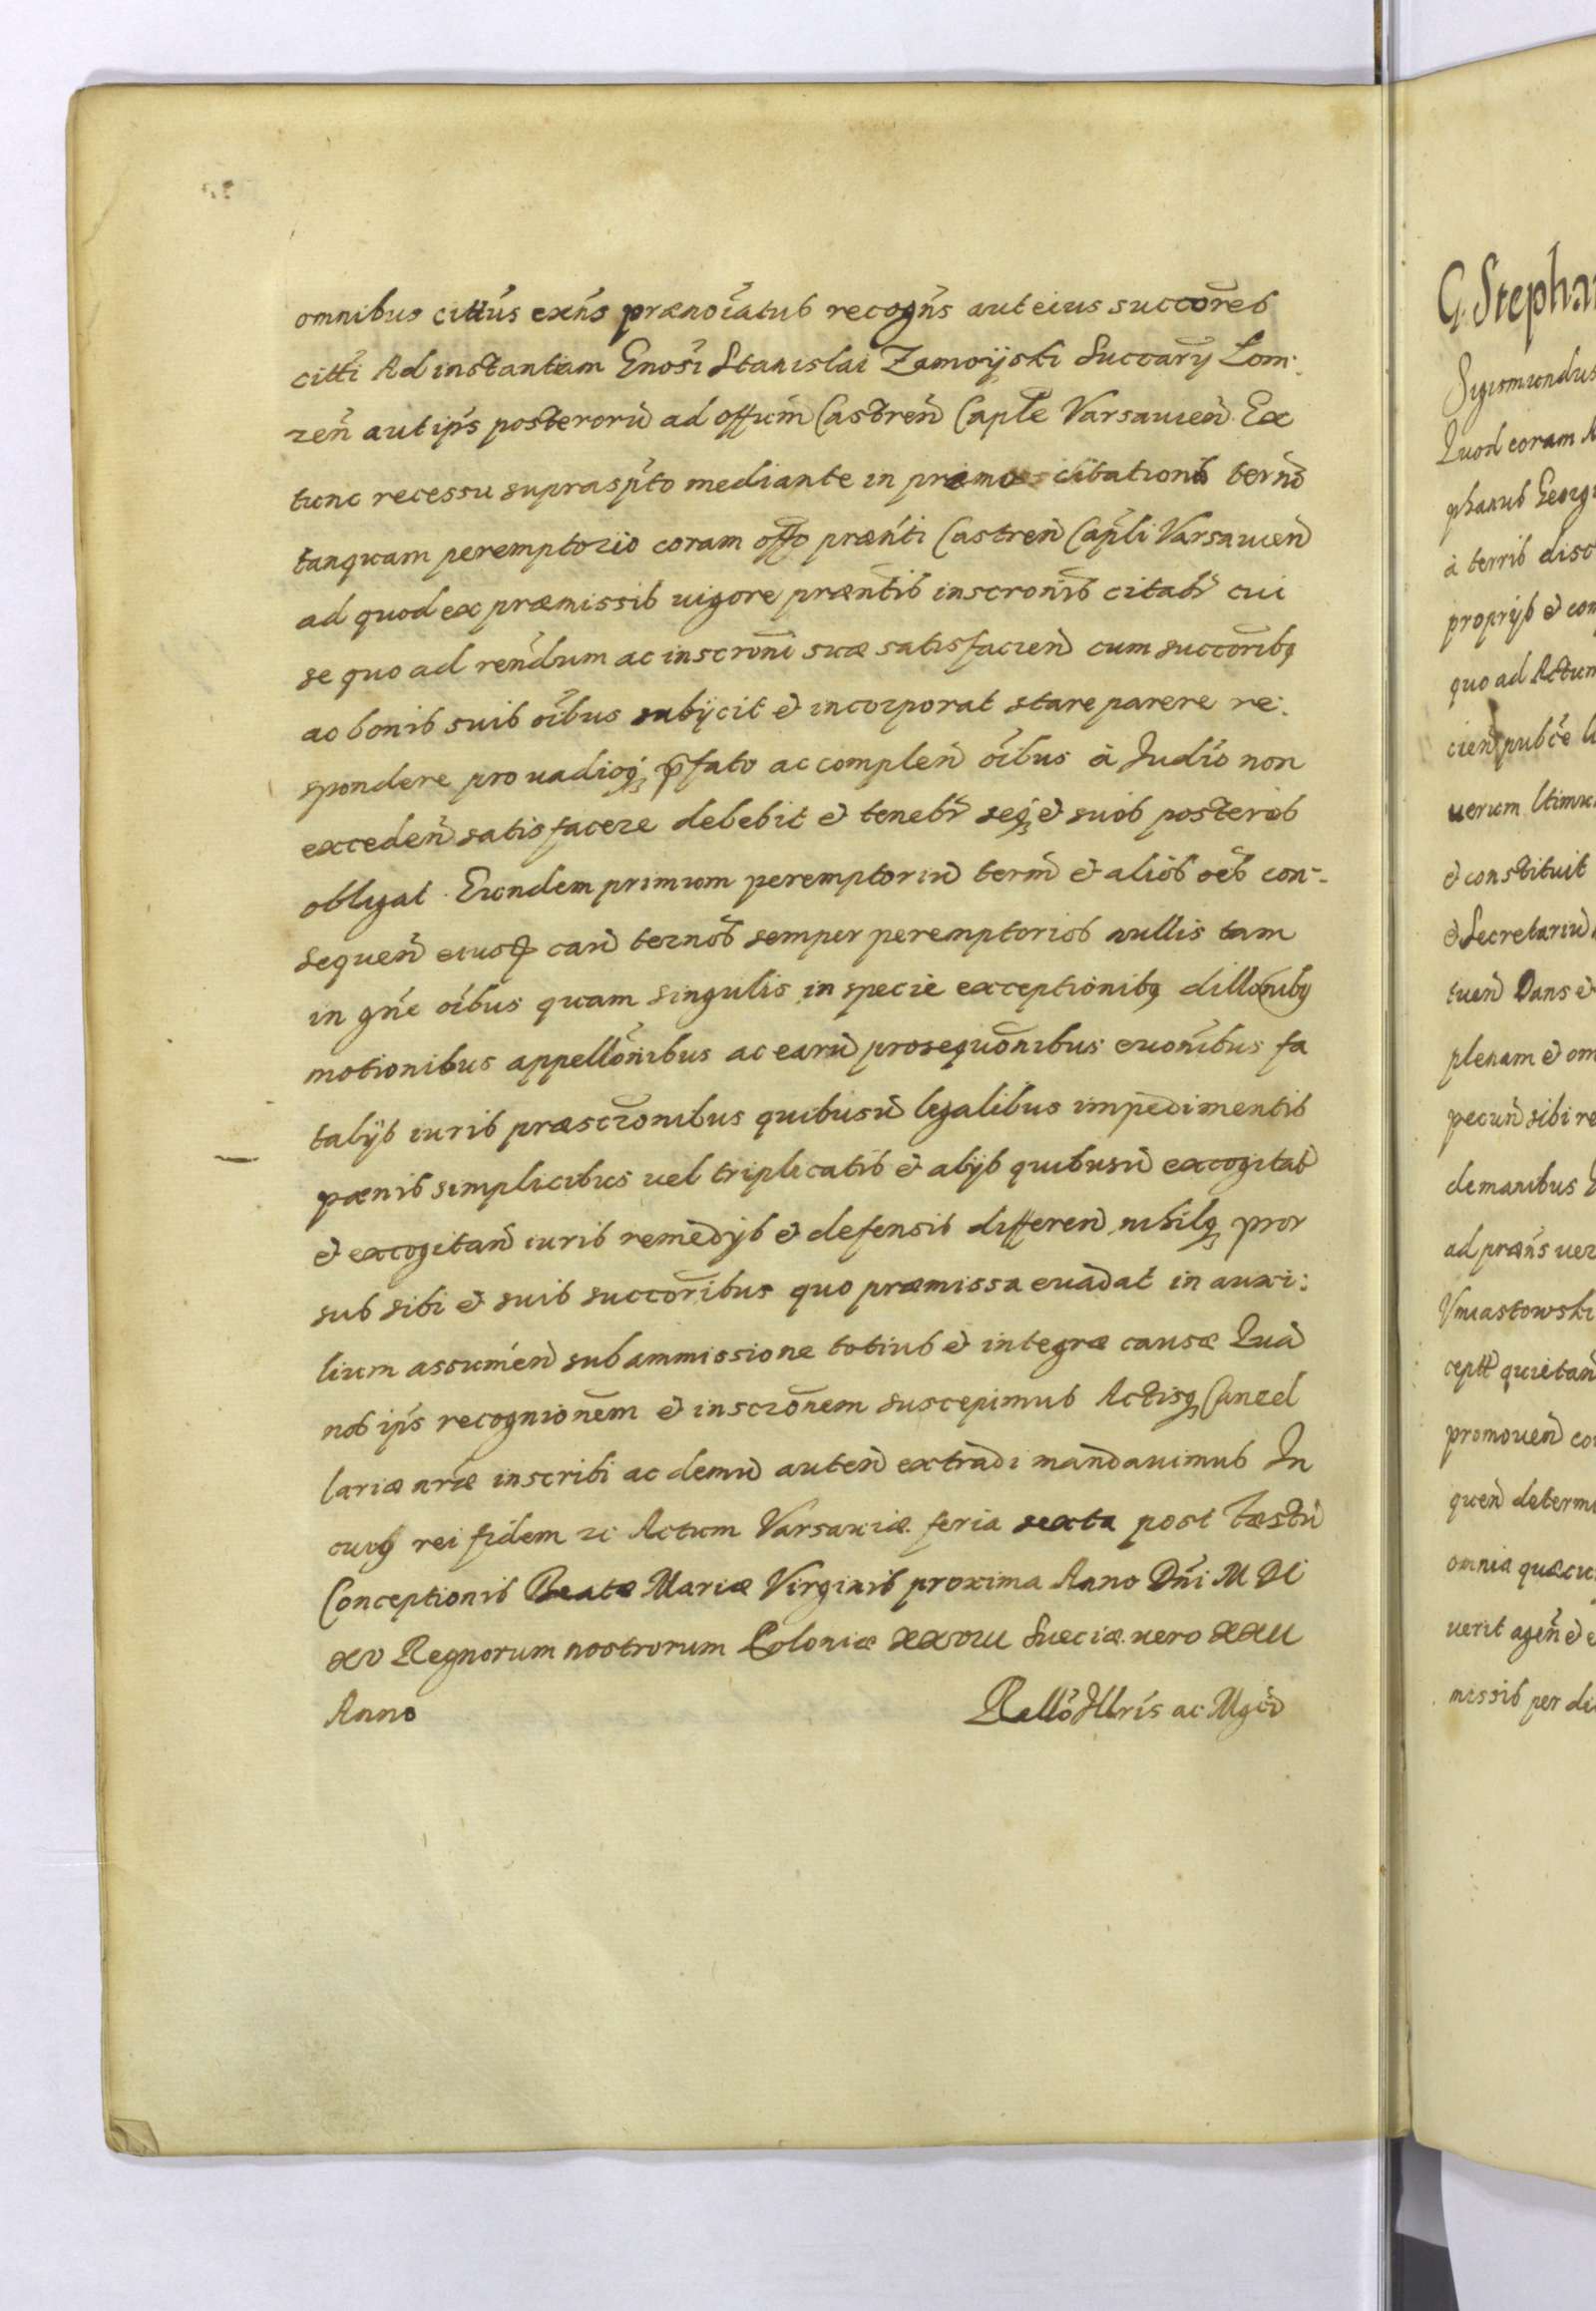 omnibus cittus exñs prænoiatus recogñs aut eius succores
citti Ad instantiam Gnosi Stanislai Zamoijski Succarij Lom:
zeñ aut ipš posteroru ad offum Castreñ Caple Varsavieñ Ex
tunc recessu supraspto mediante in primo citationis terno
tanquam peremptorio coram offo prænti Castreñ Capli Varsavieñ
ad quod ex præmissis uigore præntis inscronis citabr cui
se quo ad rendum ac inscroni suæ satisfacieñ cum succoribq
ac bonis suis oibus subijcit et incorporat stare parere re:
spondere pro uadioq pfato ac compleñ oibus à Judio non
excedeñ satisfacere debebit et tenebr seq et suos posteros
obligat. Eundem primum peremptoriu termũ et alios oes con-
sequeñ eiusq caru ternos semper peremptorios nullis tam
in gñe oibus quam singulis in specie exceptionibq dillonibq
motionibus appellonibus ac earu prosequonibus euonibus fa
talijs iuris præscronibus quibusu legalibus impedimentis
pænis simplicibus uel triplicatis et alijs quibusu excogitat
et excogitañ iuris remedijs et defensis differeñ nihilq pror
sus sibi et suis succoribus quo præmissa euadat in auxi:
lium assumeñ sub ammissione totius et integræ causæ Quã
nos ipš recognionem et inscronem suscepimus Actisq Cancel
lariæ nræ inscribi ac demu auteñ extradi mandauimus In
cuiq rei fidem zc Actum Varsauiæ feria sexta post festu
Conceptionis Beatæ Mariæ Virginis proxima Anno Dñi M DC
XV Regnorum nostrorum Poloniæ XXVIII Sueciæ uero XXII
Anno
Rello Illris ac Mgci
G. Stepha
Sigismundus
Quod coram
phanus Georgi
à terris disc
proprijs et con
quo ad Actum
cieñ pubce
uerum ltimu
et constituit
et Secretariu
tueñ Dans et
plenam et om
pecuñ sibi re
demanibus
ad præns uer
Vmiastowski
quietañ
promoueñ co
queñ determ
omnia quæcu
uerit ageñ et
missis per de